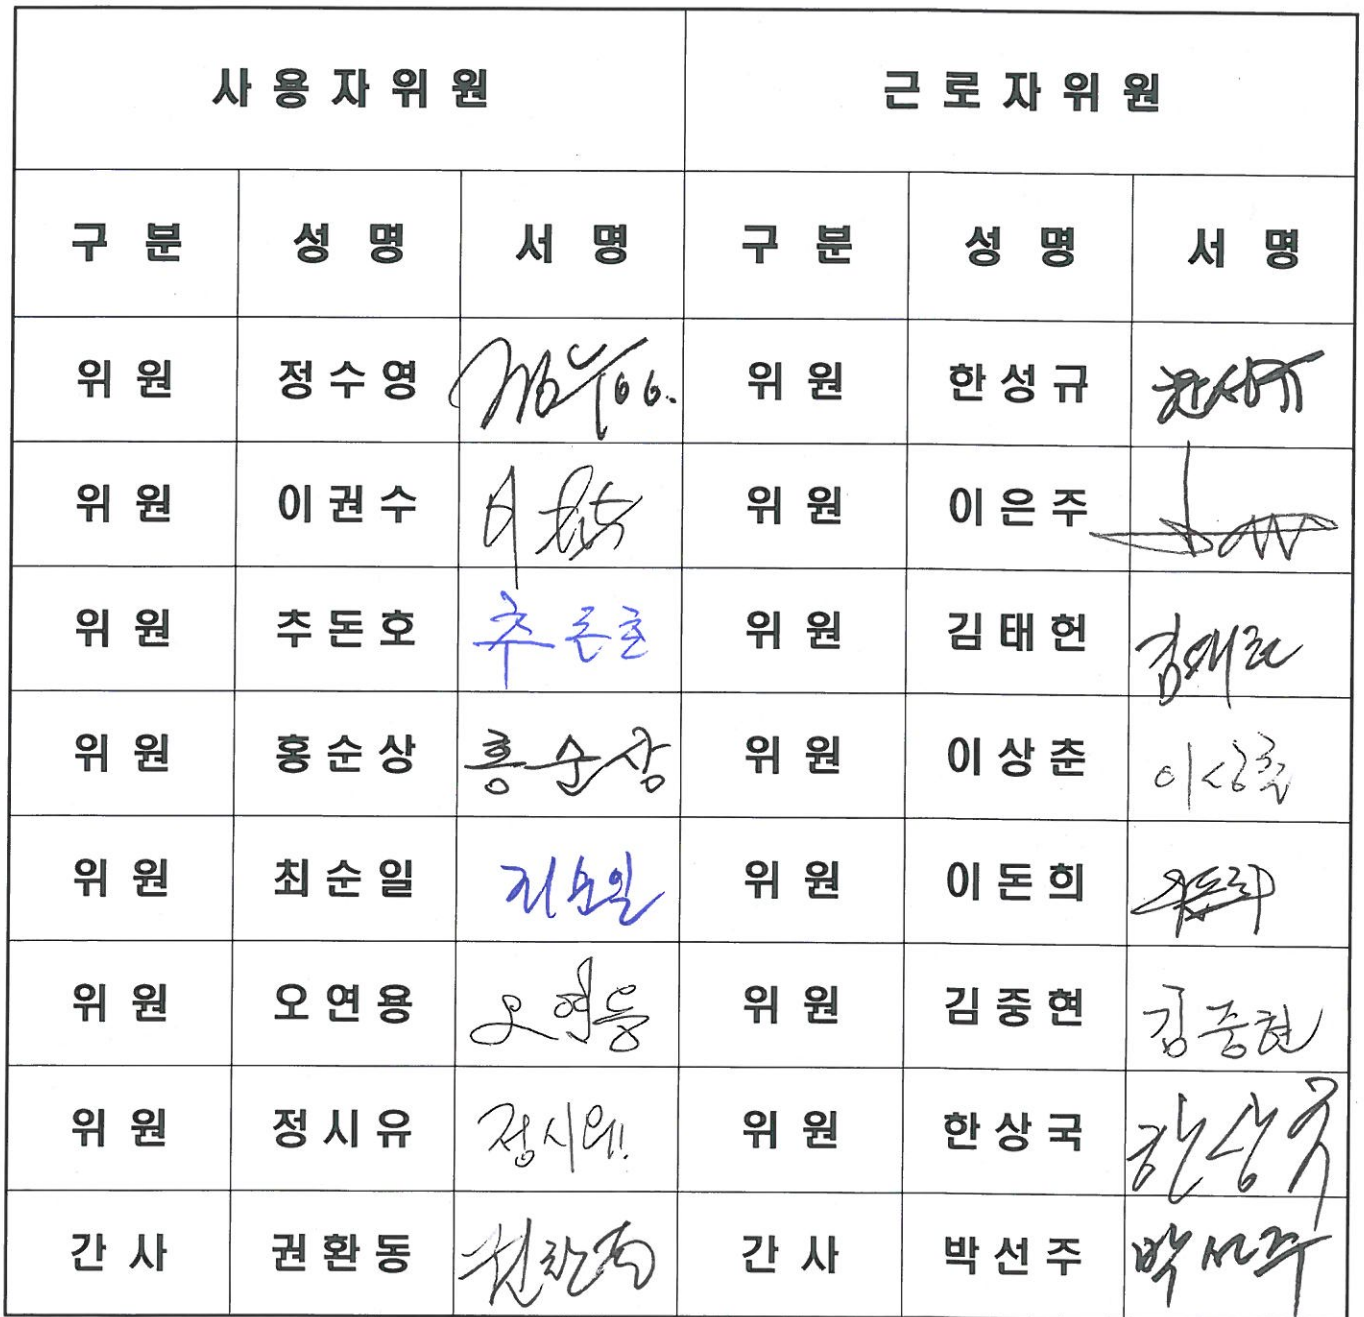 사용자위원 근로자위원
구 분 성 명 서 명 구 분 성 명 서 명
위 원 정수영 위 원 한성규
위 원 이권수 위 원 이은주
위 원 추돈호 추돈호 위 원 김태헌
위 원 홍순상 홍순상 위 원 이상춘 이상춘
위 원 최순일 위 원 이돈희
위 원 오연용 오연용 위 원 김중현 김중현
위 원 정시유 위 원 한상국 한상국
간 사 권환동 간 사 박선주 박선주